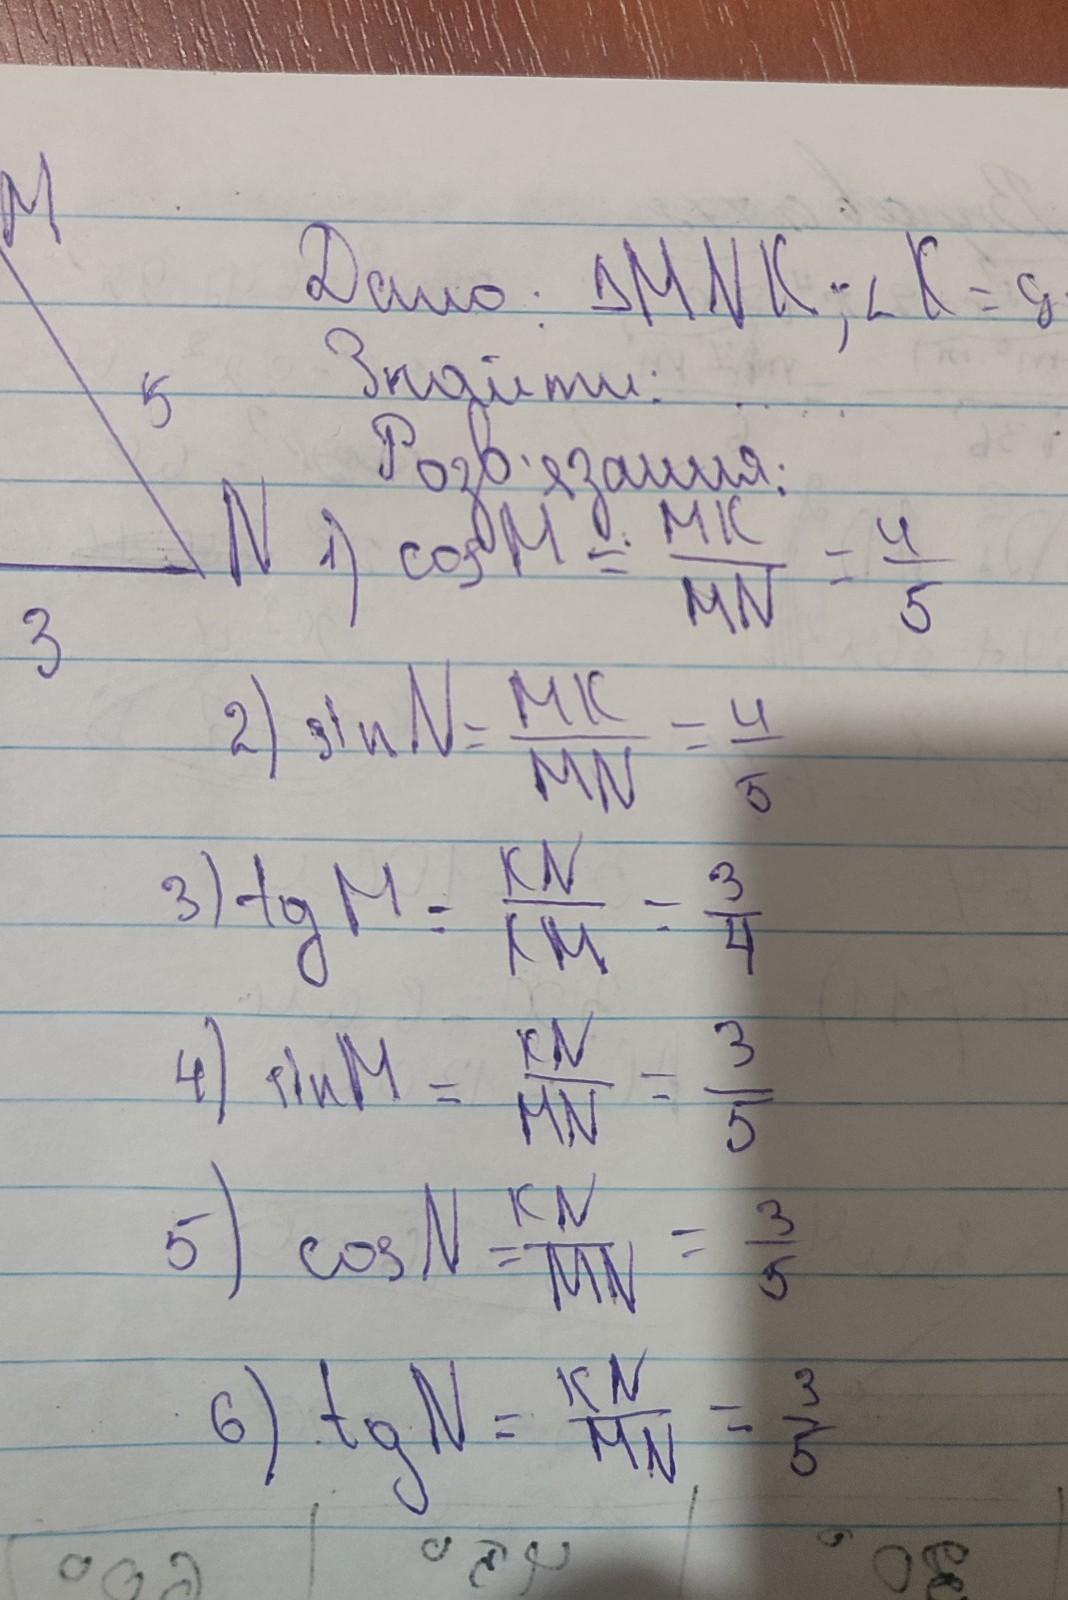 M
Дано: ΔMNK; ∠K=9
Знайти:
5
Розв'язання:
N
1) cosM = MK/MN = 4/5
3
2) sinN = MK/MN = 4/5
3) tgM = KN/KM = 3/4
4) sinM = KN/MN = 3/5
5) cosN = KN/MN = 3/5
6) tgN = KN/MN = 3/5